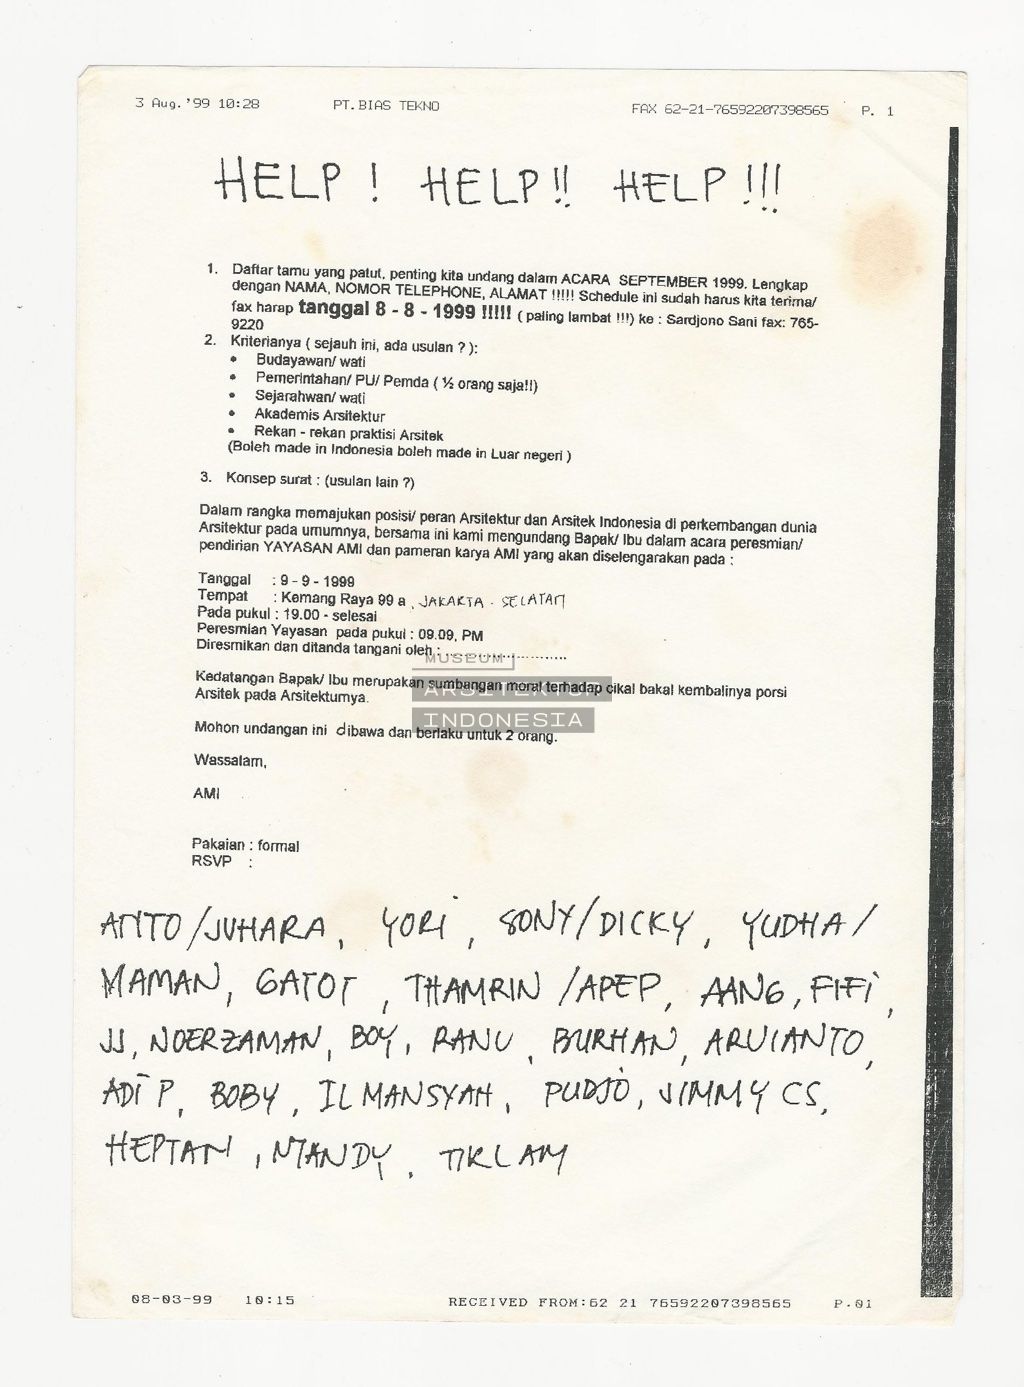 3 Aug.'99 10:28 PT.BIAS TEKNO FAX 62-21-76592207398565 P. 1
HELP ! HELP !! HELP !!!
1. Daftar tamu yang patut, penting kita undang dalam ACARA SEPTEMBER 1999. Lengkap
dengan NAMA, NOMOR TELEPHONE, ALAMAT !!!!! Schedule ini sudah harus kita terima/
fax harap tanggal 8 - 8 - 1999 !!!!! ( paling lambat !!!) ke : Sardjono Sani fax: 765-
9220
2. Kriterianya ( sejauh ini, ada usulan ? ):
• Budayawan/ wati
• Pemerintahan/ PU/ Pemda ( ½ orang saja!!)
• Sejarahwan/ wati
• Akademis Arsitektur
• Rekan - rekan praktisi Arsitek
(Boleh made in Indonesia boleh made in Luar negeri )
3. Konsep surat : (usulan lain ?)
Dalam rangka memajukan posisi/ peran Arsitektur dan Arsitek Indonesia di perkembangan dunia
Arsitektur pada umumnya, bersama ini kami mengundang Bapak/ Ibu dalam acara peresmian/
pendirian YAYASAN AMI dan pameran karya AMI yang akan diselengarakan pada :
Tanggal : 9 - 9 - 1999
Tempat : Kemang Raya 99 a , JAKARTA - SELATAN
Pada pukul : 19.00 - selesai
Peresmian Yayasan pada pukul : 09.09, PM
Diresmikan dan ditanda tangani oleh : ...........................
MUSEUM
Kedatangan Bapak/ Ibu merupakan sumbangan moral terhadap cikal bakal kembalinya porsi
ARSITEKTUR
Arsitek pada Arsitekturnya.
INDONESIA
Mohon undangan ini dibawa dan berlaku untuk 2 orang.
Wassalam,
AMI
Pakaian : formal
RSVP :
ANTO/JUHARA, YORI, SONY/DICKY, YUDHA/
MAMAN, GATOT, THAMRIN/APEP, AANG, FIFI,
JJ, NOERZAMAN, BOY, RANU, BURHAN, ARVIANTO,
ADI P, BOBY, ILMANSYAH, PUDJO, JIMMY CS,
HEPTAN, NANDY, TIKLAM
08-03-99 10:15 RECEIVED FROM:62 21 76592207398565 P.01